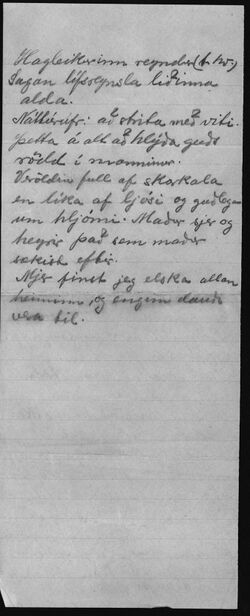 Hagleikurinn reyndur (t. kv.)
Sagan lífsreynsla liðinna
alda.
Náttúrufr: að strita með viti.
Þetta á alt að hlýða guðs
rödd í manninum.
Veröldin full af skarkala
en líka af ljósi og guðlegum
um hljómi. Maður sjer og
heyrir það sem maður
sækist eftir.
Mjer finst jeg elska allan
heiminn, og enginn dauði
vera til.